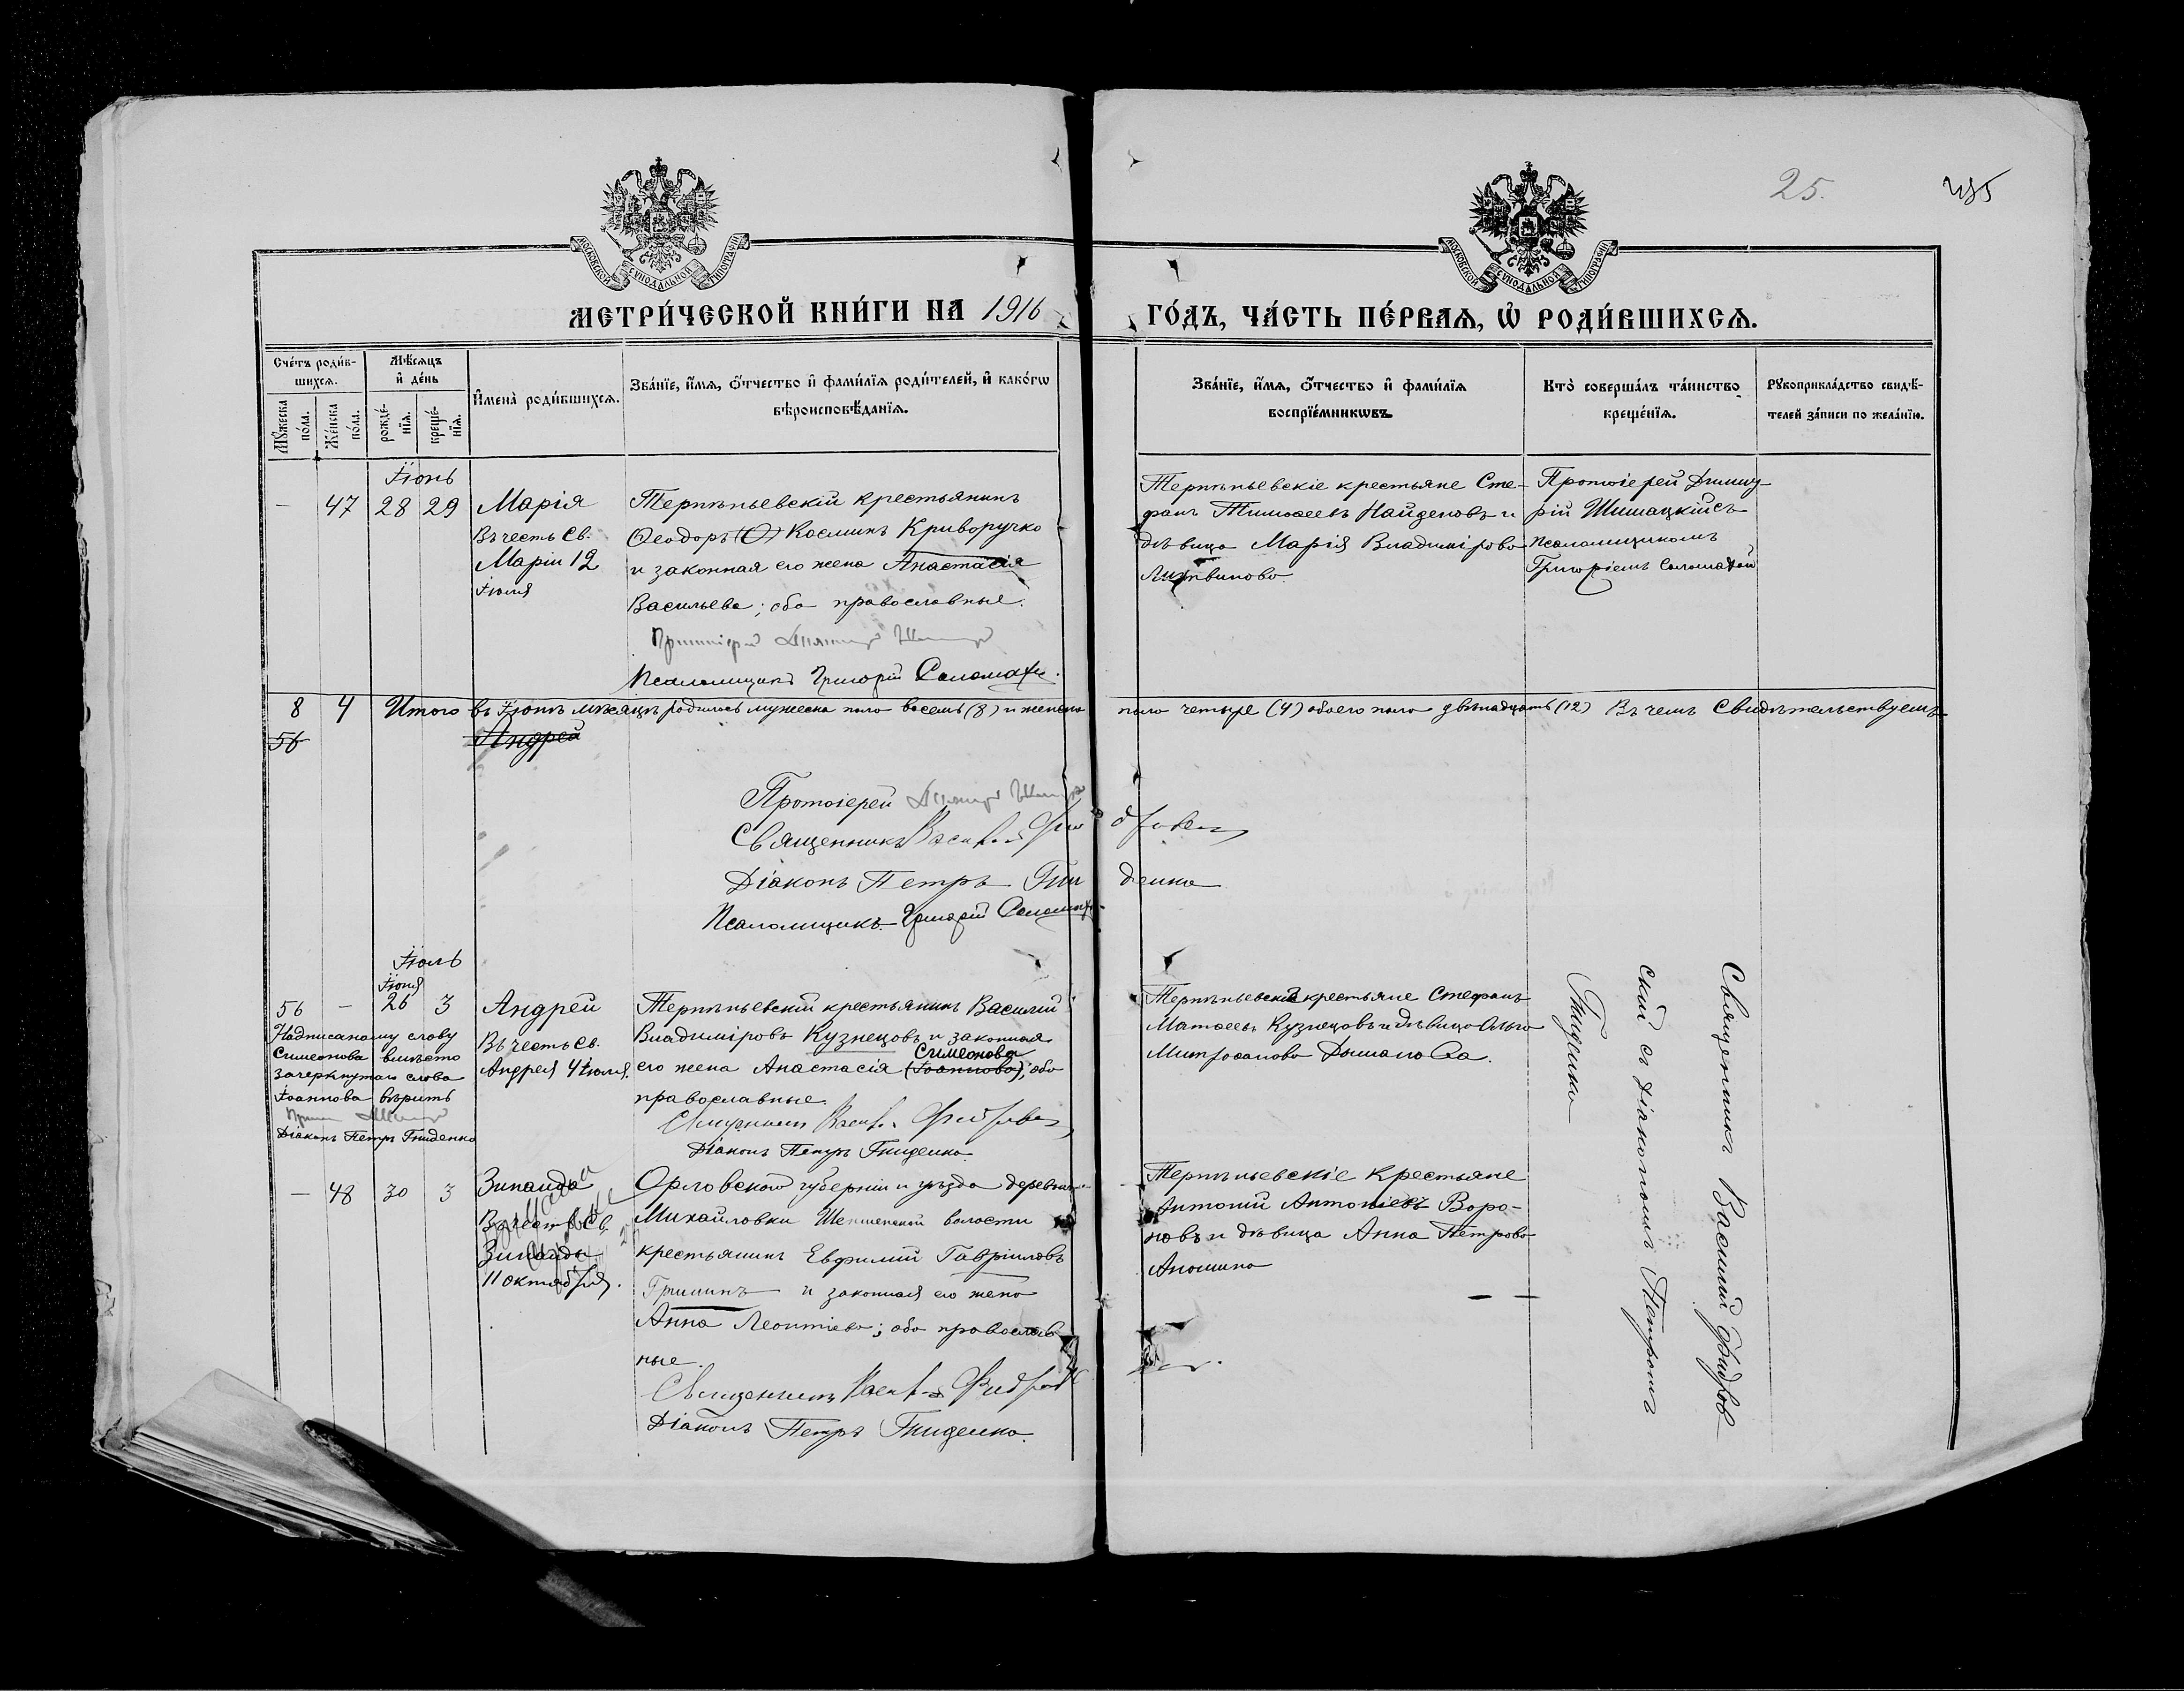 25.
МОСКОВСКОЙ СѴНОДАЛЬНОЙ ТИПОГРАФІИ
МОСКОВСКОЙ СѴНОДАЛЬНОЙ ТИПОГРАФІИ
МЕТРИ́ЧЕСКОЙ КНИ́ГИ НА 1916 ГО́ДЪ, ЧА́СТЬ ПЕ́РВАѦ, Ѡ РОДИ́ВШИХСѦ.
Сче́тъ роди́в-
шихсѧ.
Мꙋ́жеска
по́ла.
Же́нска
по́ла.
Мѣ́сѧцъ
и҆ де́нь
рожде́-
нїѧ.
креще́-
нїѧ.
И҆мена̀ роди́вшихсѧ.
Зва́нїе, и҆́мѧ, ѻ҆́тчество и҆ фами́лїѧ роди́телей, и҆ како́гѡ
вѣроисповѣ́данїѧ.
Зва́нїе, и҆́мѧ, ѻ҆́тчество и҆ фами́лїѧ
воспрїе́мникѡвъ.
Кто̀ соверша́лъ та́инство
креще́нїѧ.
Рꙋкоприкла́дство свидѣ́-
телей за́писи по жела́нїю.
Іюнь
— 47 28 29
Марія
Въ честь Св.
Маріи 12
Іюля
Терпѣньевскій крестьянинъ
Ѳеодоръ (Ѳ) Косминъ Криворучко
и законная его жена Анастасія
Васильева; оба православные.
Псаломщикъ Григорій Соломаха.
Терпѣньевскіе крестьяне Сте-
фанъ Тимоѳеевъ Найденовъ и
дѣвица Марія Владимірова
Литвинова.
Протоіерей Дими-
рій Шишацкій съ
псаломщикомъ
Григоріемъ Соломахой
8 4 Итого въ Іюнѣ мѣсяцѣ родилось мужеска пола восемь (8) и женска пола четыре (4) обоего пола двѣнадцать (12) Въ чемъ Свидѣтельствуемъ
56 Андрей
Протоіерей
Священникъ Василій
Діаконъ Петръ Гниденко
Псаломщикъ Григорій Соломаха
Іюль
Іюня
56 — 26 3
Надписаному слову
Симеонова вмѣсто
зачеркнутаго слова
Іоаннова вѣрить
Діаконъ Петръ Гниденко
Андрей
Въ честь Св.
Андрея 4 Іюля.
Терпѣньевскій крестьянинъ Василій
Владиміровъ Кузнецовъ и законная
Симеонова
его жена Анастасія (Іоаннова); оба
православные.
Діаконъ Петръ Гниденко.
Терпѣньевскіе крестьяне Стефанъ
Матѳеевъ Кузнецовъ и дѣвица Ольга
Митрофанова
Священникъ Василій Фидров-
скій съ діакономъ Петромъ
Гниденко
— 48 30 3
Зинаида
Въ честь Св.
Зинаиды
11 октября.
Орловской губерніи и уѣзда деревни
Михайловки волости
крестьянинъ Евфимій Гавріиловъ
Гришинъ и законная его жена
Анна Леонтіева; оба православ-
ные.
Священникъ
Діаконъ Петръ Гниденко.
Терпѣньевскіе крестьяне
Антоній Антоніевъ Воро-
новъ и дѣвица Анна Петрова
Аношина